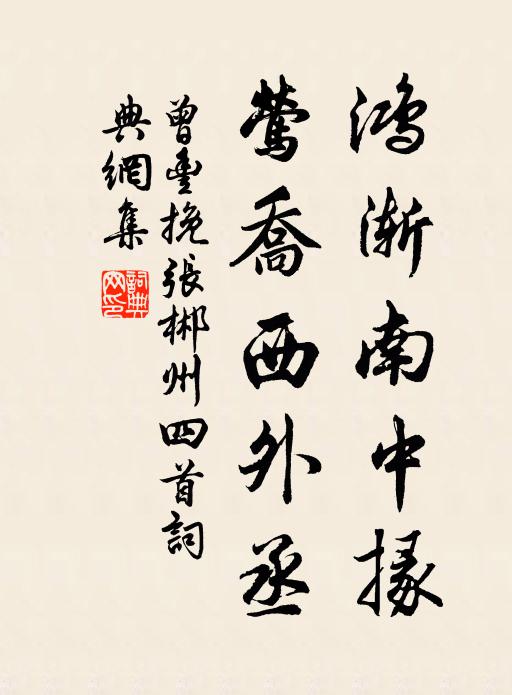 鴻漸南中掾
鶯喬西外丞
曾豐挽張郴州四首詞
典網集
詞典網印